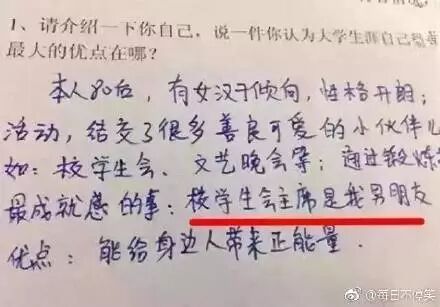 1、请介绍一下你自己，说一件你认为大学生涯自己
最大的优点在哪？
本人80后，有女汉子倾向，性格开朗；
活动，结交了很多善良可爱的小伙伴
如：校学生会、文艺晚会等；通过锻炼
最成就感的事：校学生会主席是我男朋友
优点：能给身边人带来正能量．
@每日不停笑